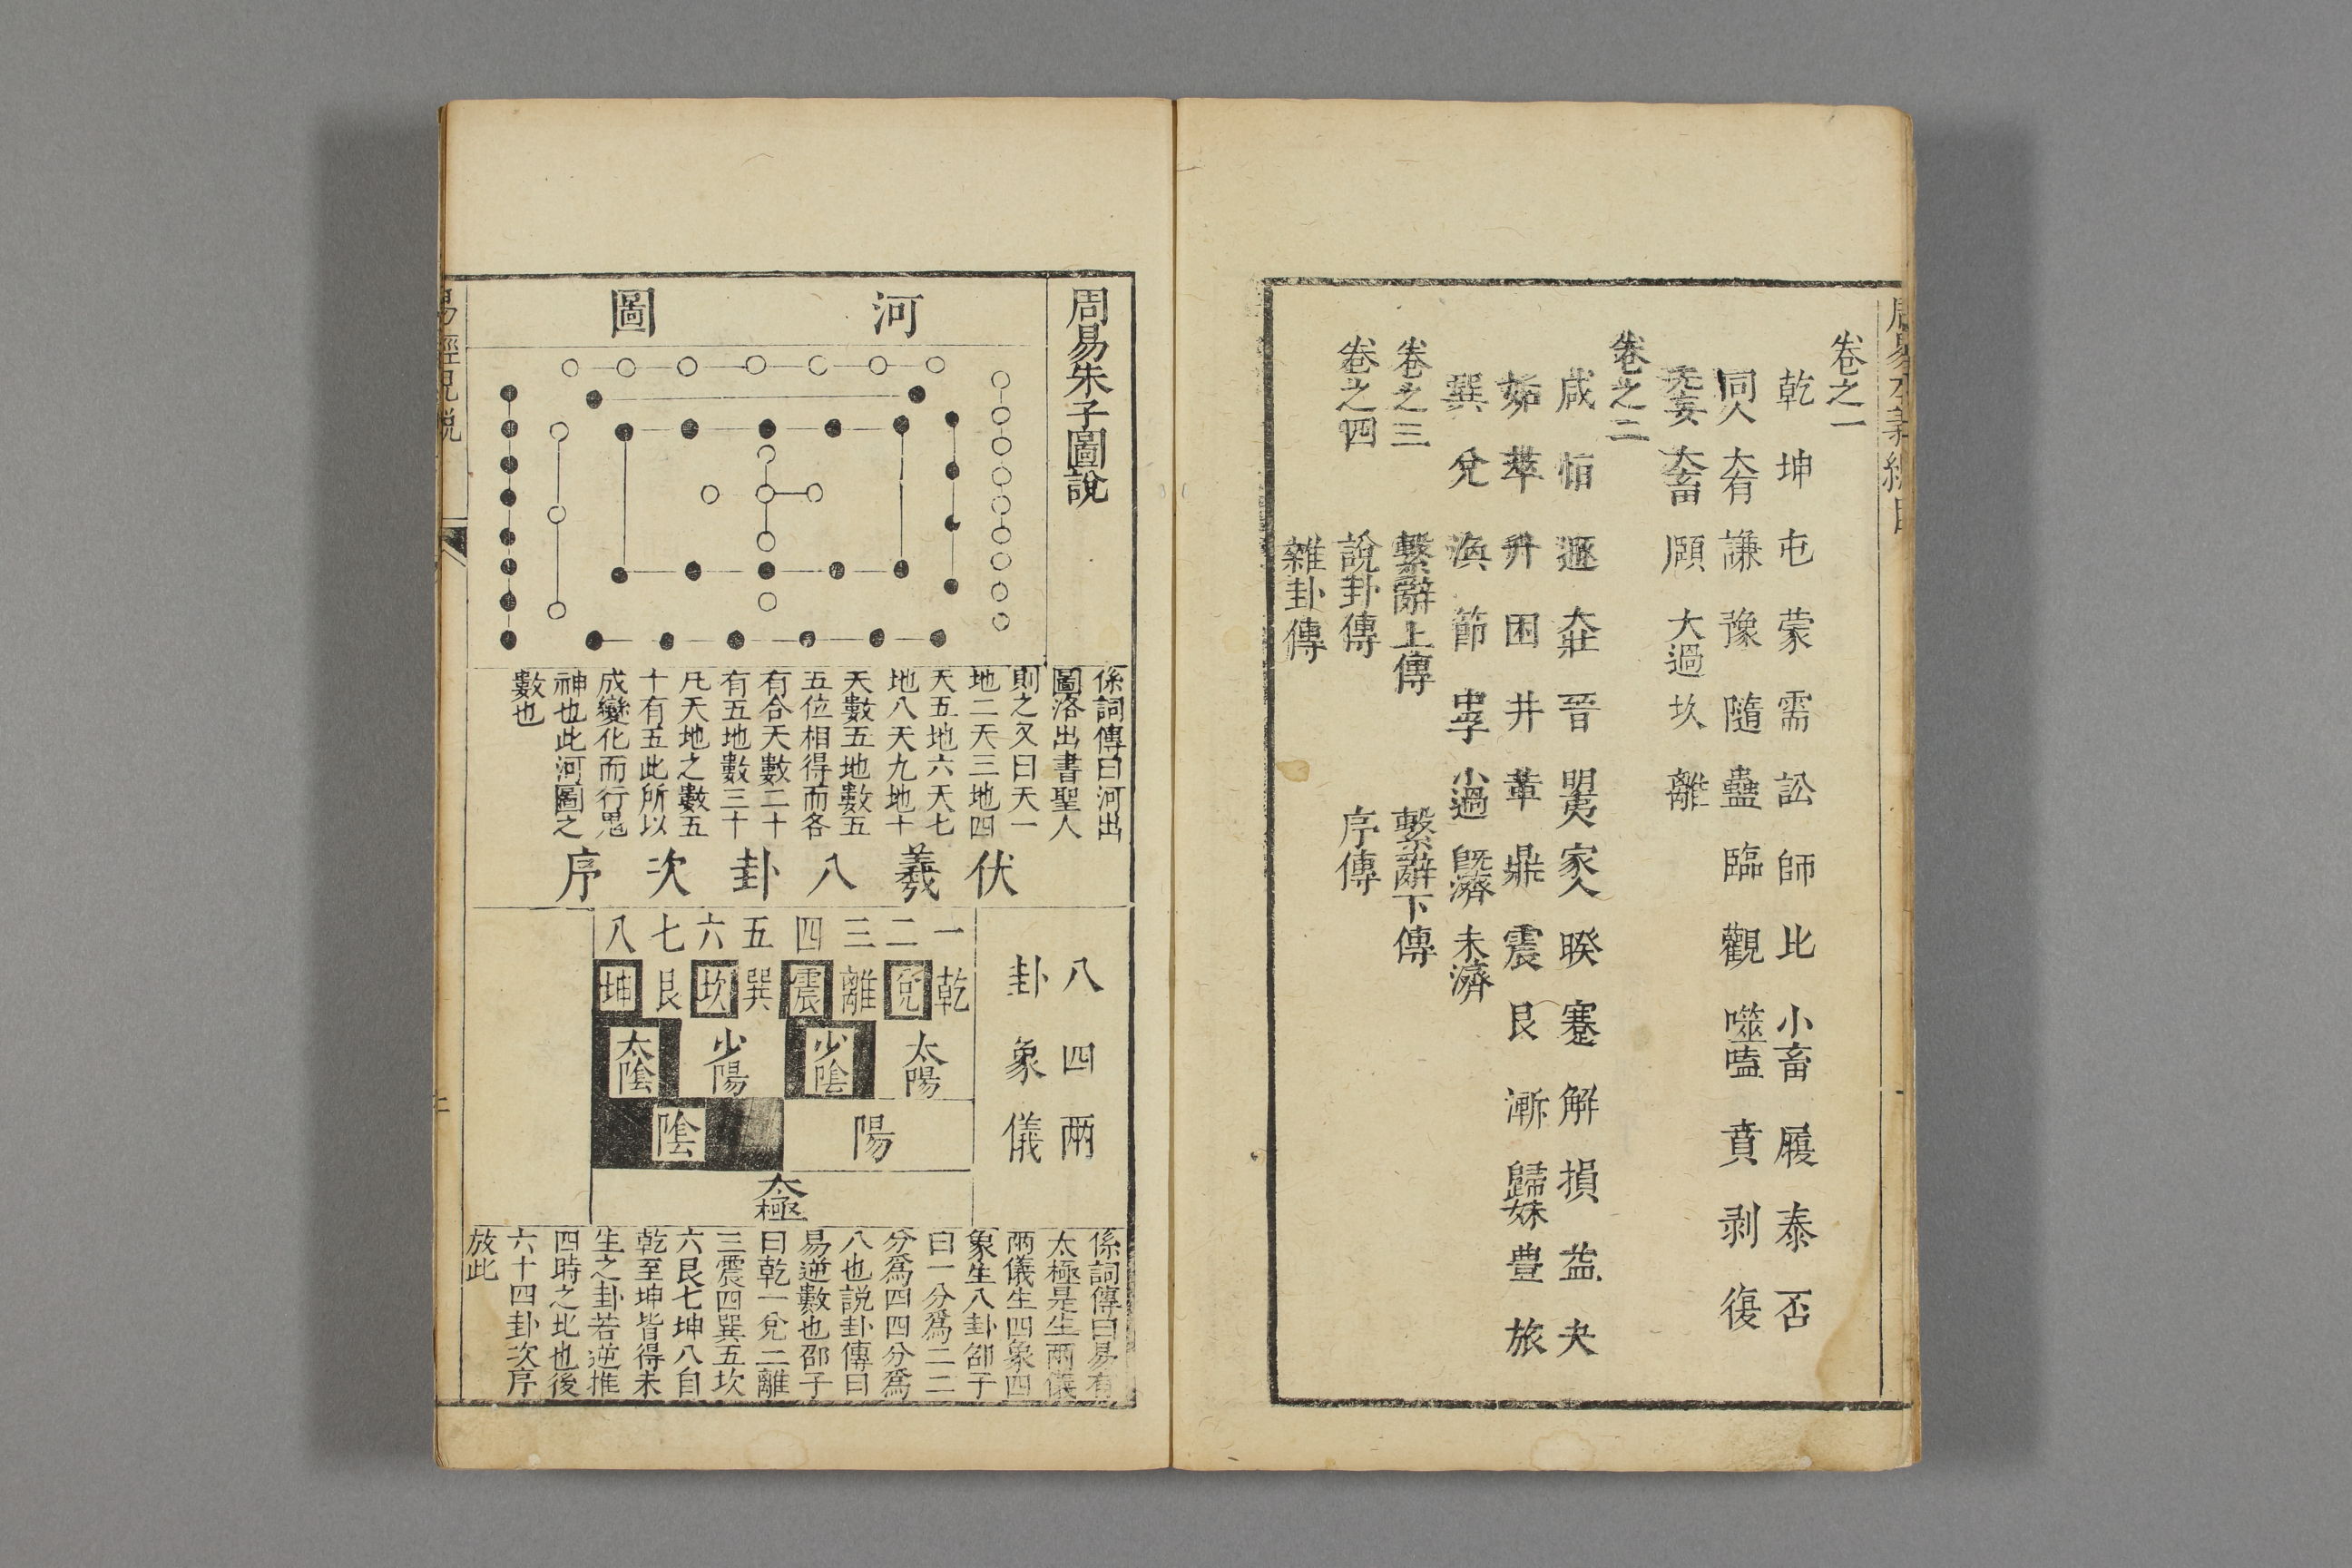 卷之一
乾 坤 屯 蒙 需 訟 師 比 小畜 履 泰 否
同人 大有 謙 豫 隨 蠱 臨 觀 噬嗑 賁 剥 復
无妄 大畜 頤 大過 坎 離
卷之二
咸 恒 遯 大壯 晉 明夷 家人 睽 蹇 解 損 益 夬
姤 萃 升 困 井 革 鼎 震 艮 漸 歸妹 豊 旅
巽 兌 渙 節 中孚 小過 旣濟 未濟
卷之三 繫辭上傳 繫辭下傳
卷之四 說卦傳 序傳
雜卦傳
周易朱子圖說
河圖
係詞傳曰河出
圖洛出書聖人
則之又曰天一
地二天三地四
天五地六天七
地八天九地十
天數五地數五
五位相得而各
有合天數二十
有五地數三十
凡天地之數五
十有五此所以
成變化而行鬼
神也此河圖之
數也
伏羲八卦次序
八四兩
卦象儀
一二三四五六七八
乾兌離震巽坎艮坤
太陽 少陰 少陽 太陰
陽 陰
太極
係詞傳曰易有
太極是生兩儀
兩儀生四象四
象生八卦邵子
曰一分爲二二
分爲四四分爲
八也説卦傳曰
易逆數也邵子
曰乾一兌二離
三震四巽五坎
六艮七坤八自
乾至坤皆得未
生之卦若逆推
四時之比也後
六十四卦次序
放此